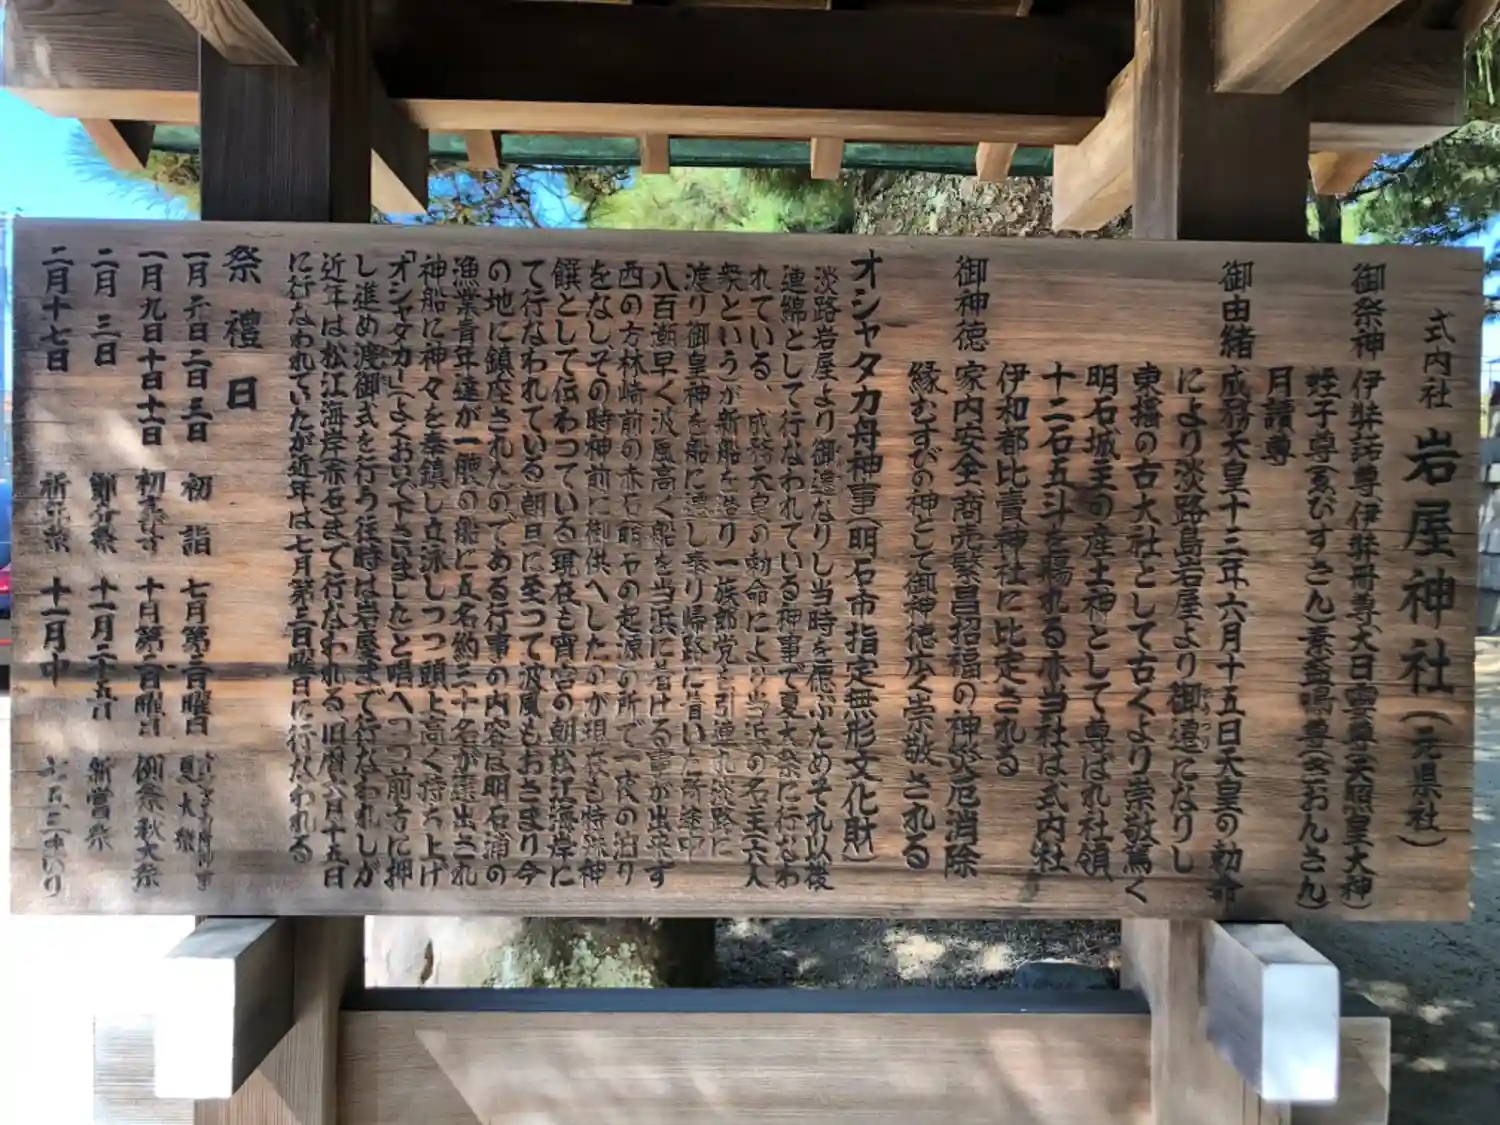 式内社 岩屋神社(元県社)
御祭神 伊弉諾尊、伊弉冊尊、大日霊尊(天照皇大神)
蛭子尊(えびすさん)素盞嗚尊(ぎおんさん)
月讀尊
御由緒 成務天皇十三年六月十五日天皇の勅命
により淡路島岩屋より御遷になりし
東播の古大社として古くより崇敬篤く
明石城主の産土神として尊ばれ社領
十二石五斗を賜れる亦当社は式内社
伊和都比賣神社に比定される
御神徳 家内安全商売繁昌招福の神災厄消除
縁むすびの神として御神徳広く崇敬される
オシャタカ舟神事(明石市指定無形文化財)
淡路岩屋より御遷なりし当時を偲ぶためそれ以後
連綿として行なわれている神事で夏大祭に行なわ
れている、成務天皇の勅命により当浜の名主六人
衆というが新船を造り一族郎党を引連れ淡路に
渡り御皇神を船に遷し乗り帰路に着いた所途中
八百潮早く波風高く船を当浜に着ける事が出来ず
西の方林崎前の赤石(明石の起源)の所で一夜の泊り
をなし、その時神前に御供へしたのが現在も特殊神
饌として伝わっている現在も宵宮の朝松江海岸に
て行なわれている朝日に至って波風もおさまり今
の地に鎮座されたのである行事の内容は明石浦の
漁業青年達が一艘の船に五名約三十名が選出され
神船に神々を奉鎮し立泳しつつ頭上高く持ち上げ
「オシャタカ」(よくおいで下さいました)と唱へつつ前方に押
し進め渡御式を行う往時は岩屋まで行なわれしが
近年は松江海岸赤石まで行なわれる、旧暦六月十五日
に行なわれていたが近年は七月第三日曜日に行なわれる
祭禮日
一月元日二日三日 初詣 七月第三日曜日 夏大祭
一月九日十日十一日 初えびす 十月第二日曜日 例祭秋大祭
二月三日 節分祭 十一月二十五日 新嘗祭
二月十七日 祈年祭 十一月中 七五三まいり